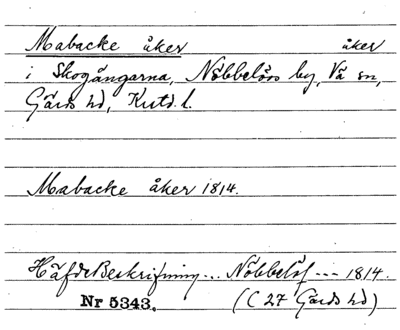 Mabacke åker åker
i Skogångarna, Nöbbelövs by, Vä sn,
Gärds hd, Krstd. l.
Mabacke åker 1814.
Häfde Beskrifning... Nöbbelöf --- 1814.
Nr 5343. (C 27 Gärds hd)